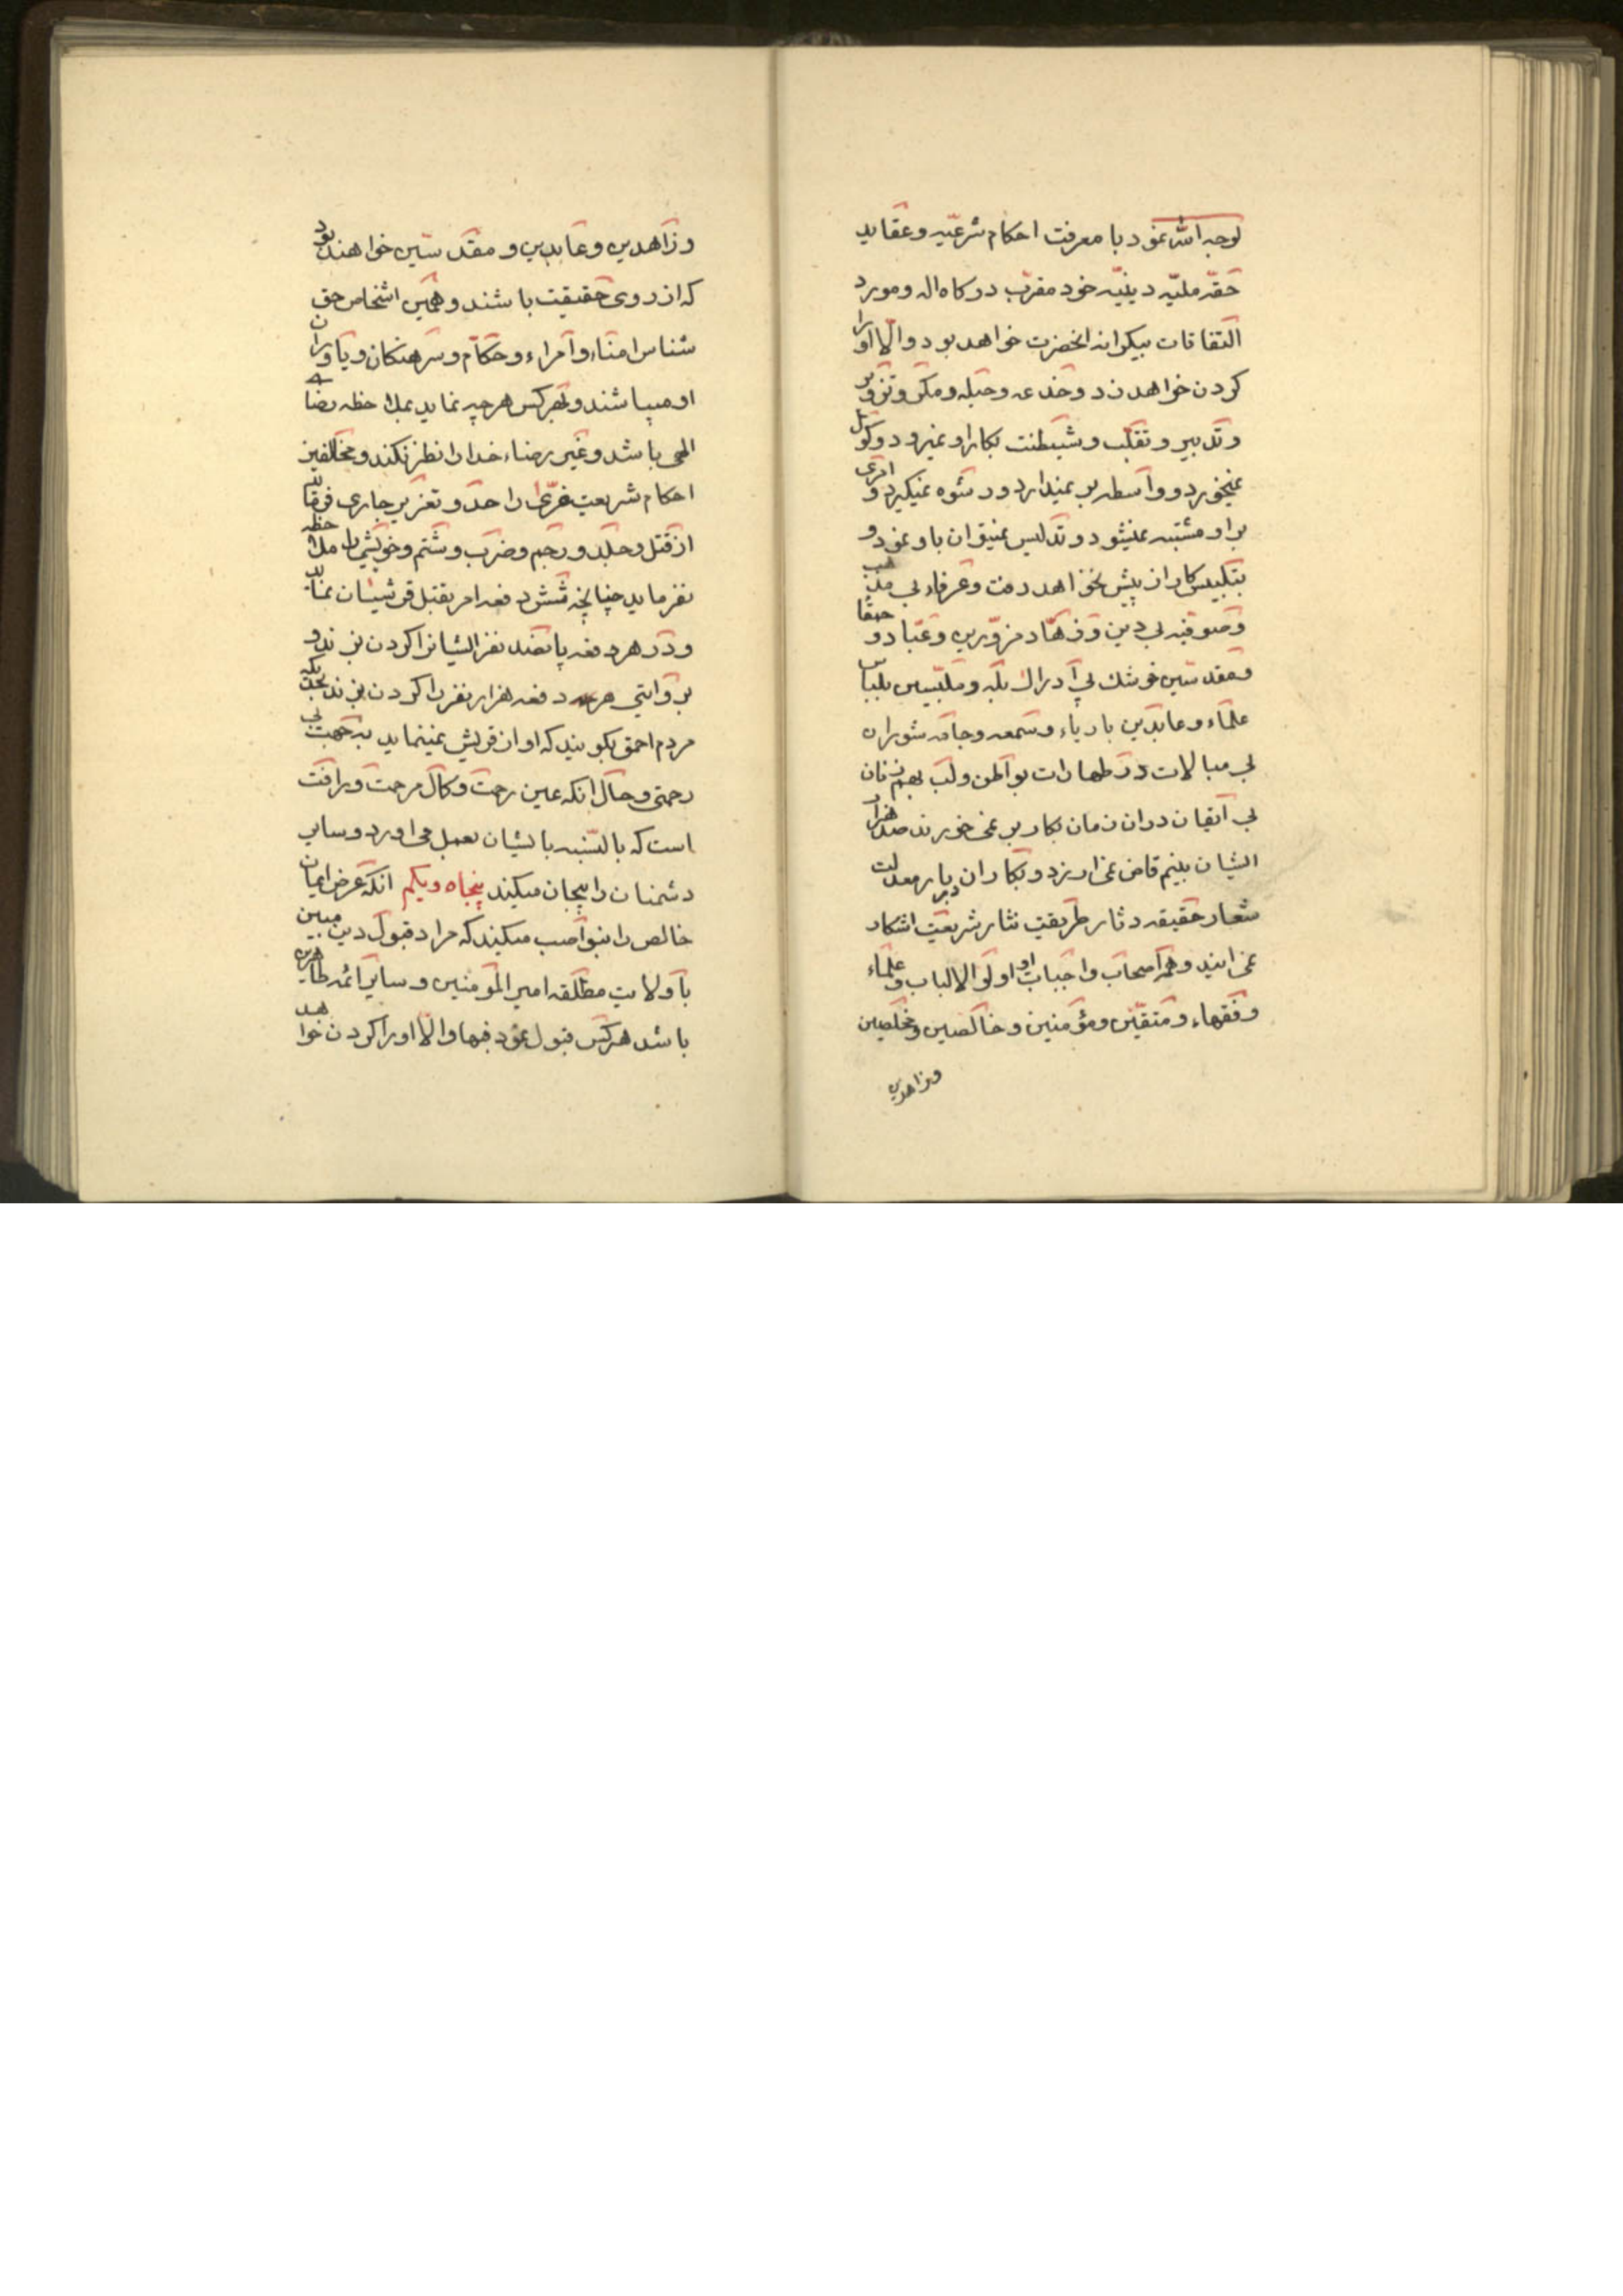 لوجه الله نمود با معرفت احکام شرعیه و عقاید
حقّه ملیّه دینیّه خود مقرّب درکاه اله و مورد
التفاقات بیکرانه انحضرت خواهد بود و الّا او را
کردن خواهد زد و خدعه و حیله و مکر و تزویر
و تدبیر و تقلّب و شیطنت بکار او نمیرود و کول
نمیخورد و واسطه بر نمیدارد و رشوه نمیکیرد و امری
بر او مشتبه نمیشود و تدلیس نمیتوان باو نمود و
بتلبیس کار از پیش نخواهد رفت و عرفاء بی مذهب
و صوفیه بی دین و زهّاد مزوّرین و عبّاد و حمقا
و مقدسّین خوشک بی ادراک بله و ملبّسین بلباس
علماء و عابدین با ریاء و سمعه و جامه شوران
بی مبالات در طهارات بواطن و لب بهم زنان
بی اتقان در ان زمان بکار بر نمی خورند صد هزار
ایشان بنیم قاض نمی ارزد و بکار ان دیار معدلت
شعار حقیقه دثار طریقت نثار شریعت اشکار
نمی ایند و همه اصحاب و احباب او اولو الالباب و علماء
و فقهاء و متقیّن و مؤمنین و خالصین و مخلصین
وزاهدین
و زاهدین و عابدین و مقدسّین خواهند بود
که از روی حقیقت باشند و همین اشخاص حق
شناس امناء و امراء و حکّام و سرهنکان و یاوران
او میباشند و بهر کس هر چه نماید بملاحظه رضاء
الهی باشد و غیر رضاء خدا را نظر نکند و مخالفین
احکام شریعت غرّی را حدّ و تعزیر جاری فرماید
از قتل و جلد و رجم و ضرب و شتم و خویشی را ملاحظه
نفرماید چنانچه شش دفعه امر بقتل قریشان نماید
و در هر دفعه پانصد نفر ایشانرا کردن بزنند و
بروایتی هر دفعه هزار نفر را کردن بزنند بحدّیکه
مردم احمق بکویند که او از قریش نمینماید به جهت بی
رحمتی و حال انکه عین رحمت و کمال مرحمت و رافت
است که بالنّسبه بایشان بعمل می اورد و سایر
دشمنان را بیجان میکند پنجاه و یکم انکه عرض ایمان
خالص را بنواصب میکند که مراد قبول دین مبین
با ولایت مطلقه امیر المؤمنین و سایر ائمه طاهرین
باشد هر کس قبول نمود فبها و الّا او را کردن خواهد